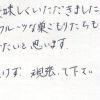 美味しくいただきました
フルーツな巣ごもりたちも
たいと思います。
けず 頑張って下さい